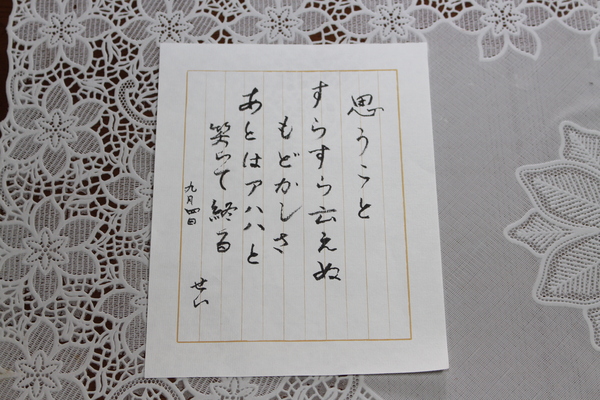 思うこと
すらすら云えぬ
もどかしさ
あとはアハハと
笑って終る
九月四日
せい